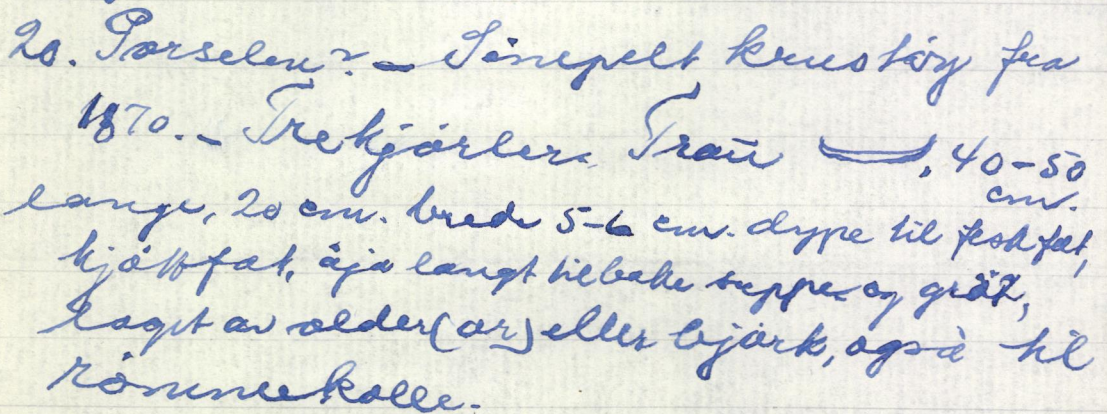 20. Porselen? – Sinepelt krustöy fra
1870. – Trekjörler. Trau , 40–50
cm.
lange, 20 cm. brede 5–6 cm. dype til feskfat,
kjöttfat, åja langt tilbake suppe og gröt,
laget av older (or) eller björk, også til
römmekolle.